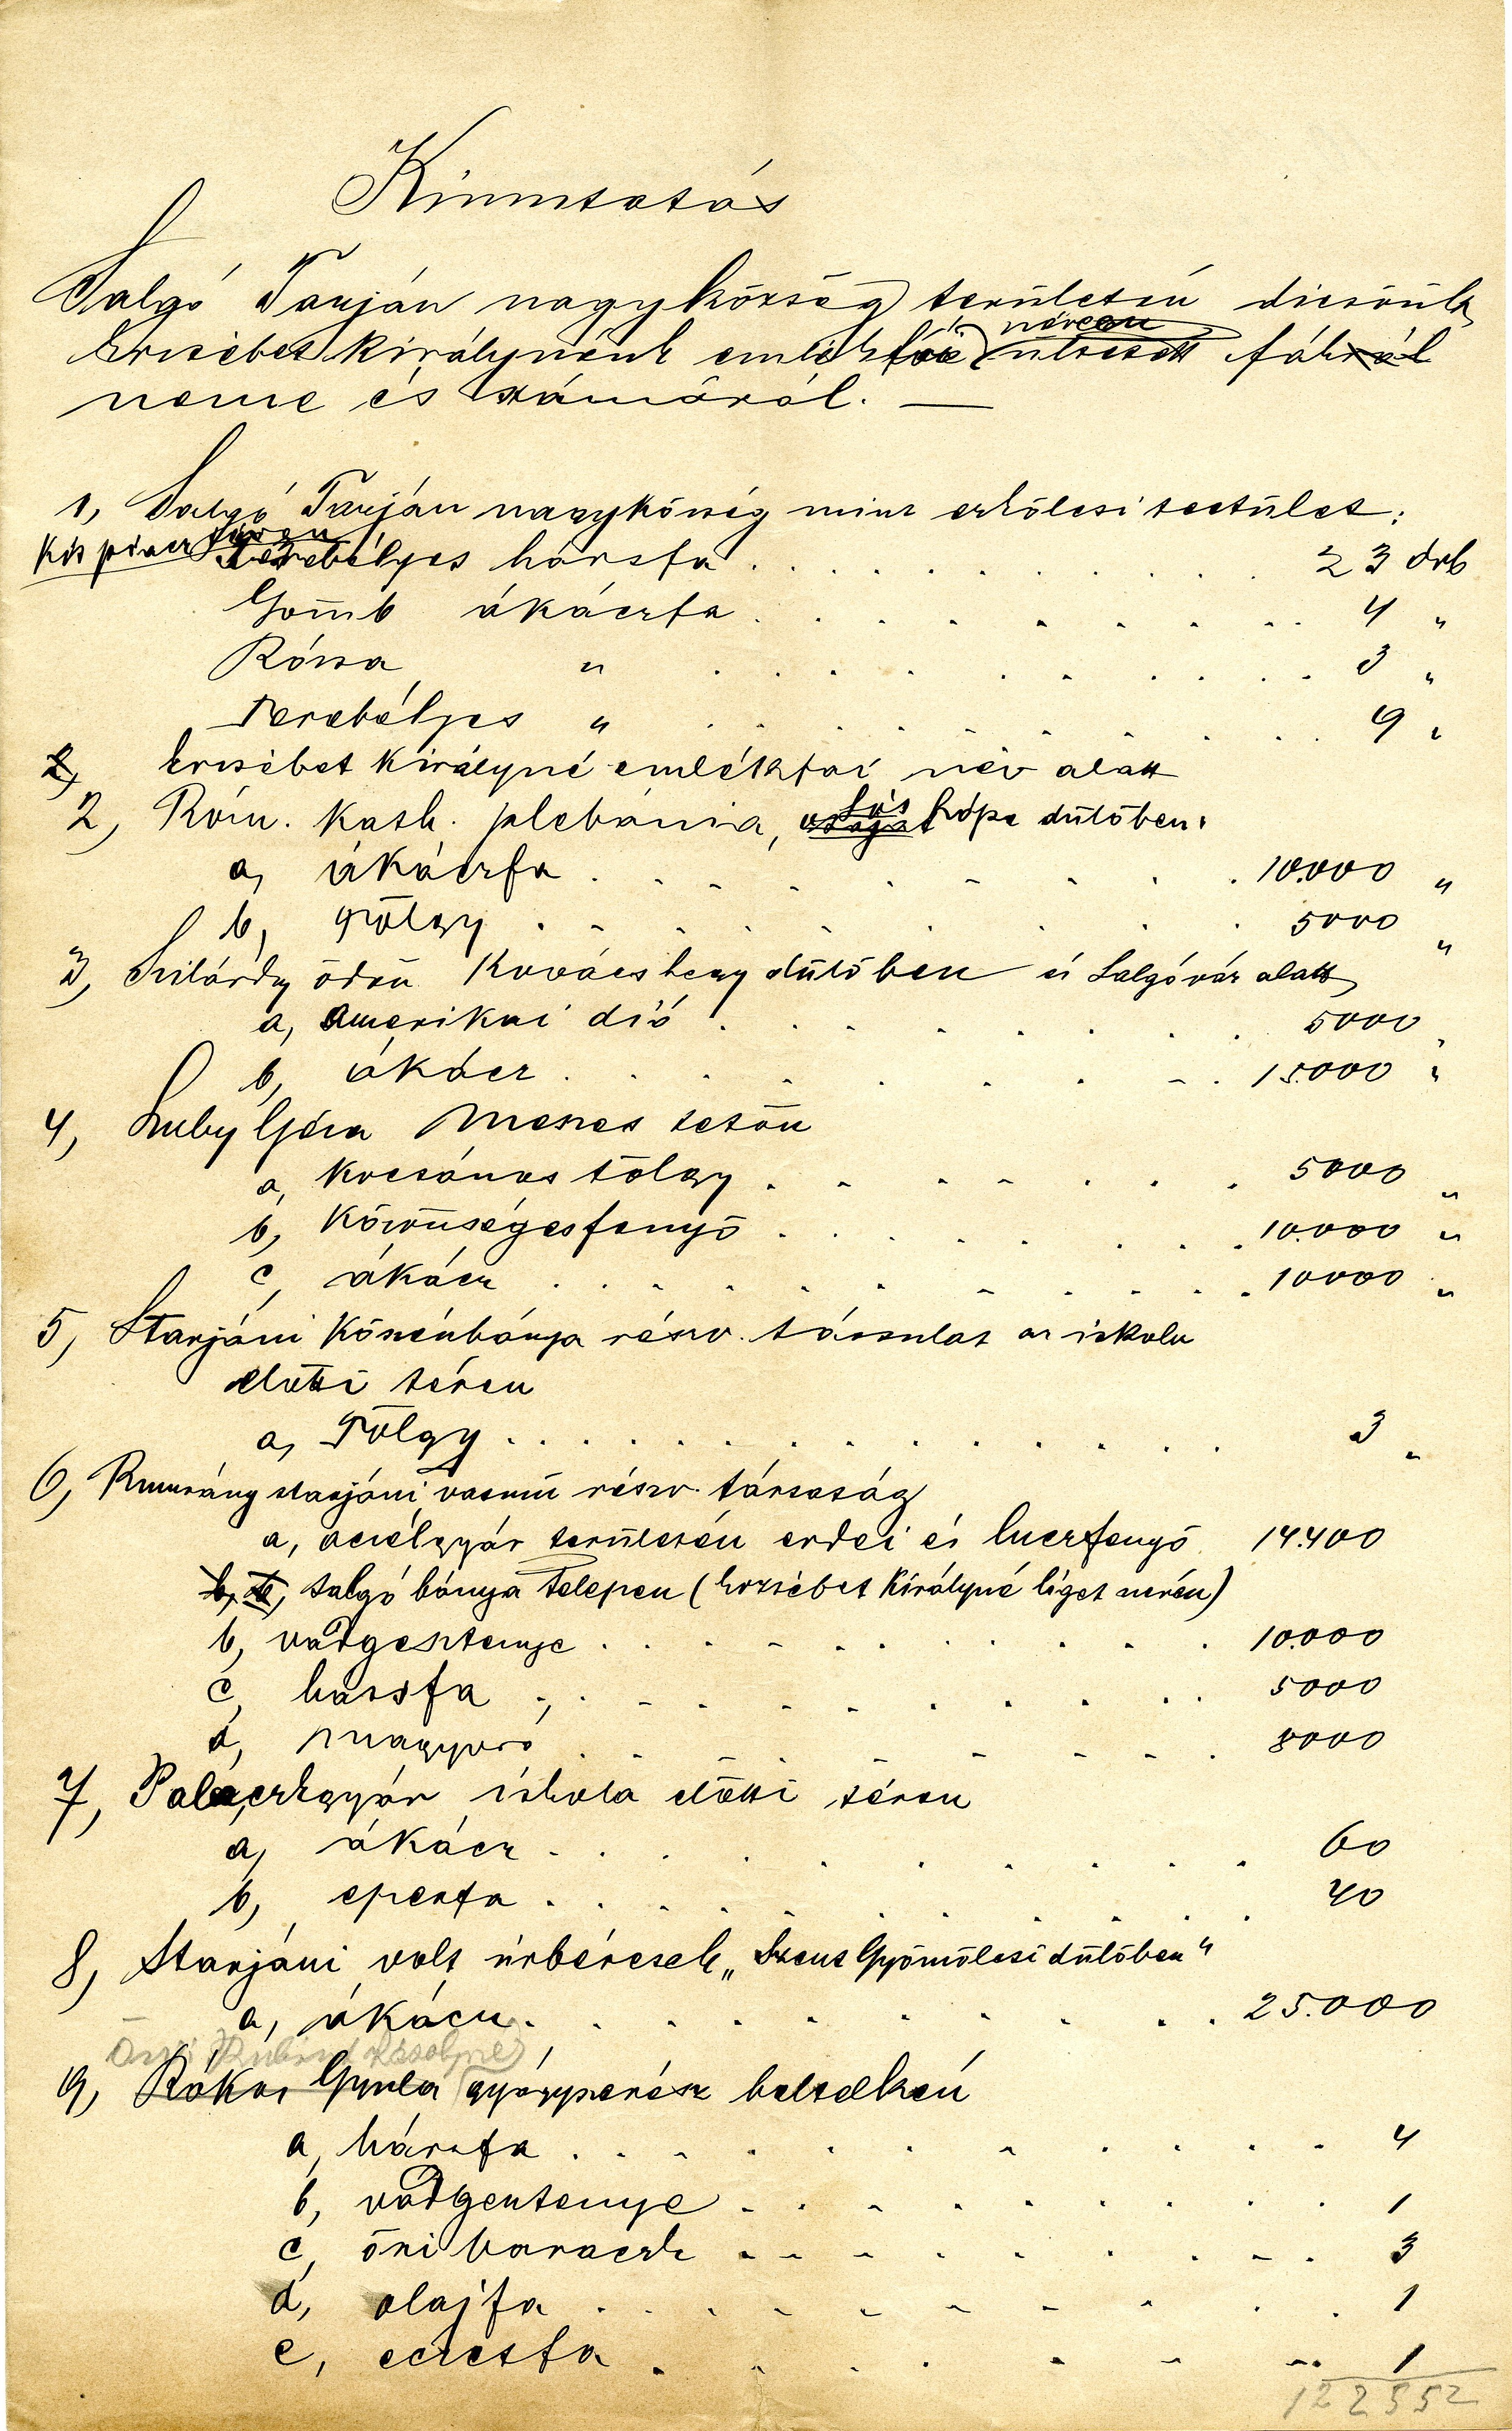 Kimutatás
Salgó Tarján nagyközség területén dicsőült
Erzsébet királynénk emlékfái néven ültetett fák
neme és számáról. —
1, Salgó Tarján nagyközség mint erkölcsi testület:
Kis piacz téren
Terebélyes hársfa . . . . . . . . . . 23 drb
Gömb ákáczfa . . . . . . . . . 4 "
Rózsa " . . . . . . . . . 3 "
Terebélyes " . . . . . . . . . 9 "
Erzsébet királyné emlékfái név alatt
2, Róm. kath. plebánia, Lós hópa dűlőben.
a, ákáczfa . . . . . . . . . 10.000 "
b, Tölgy . . . . . . . . . 5000 "
3, Szilárdy Ödön Kovácshegy dűlőben és Salgóvár alatt
a, amerikai dió . . . . . . . . 5000 "
b, ákácz . . . . . . . . . 15.000 "
4, Luby Géza Meszes tetőn
a, kocsános tölgy . . . . . . . 5000 "
b, Közönséges fenyő . . . . . . . . 10.000 "
c, ákácz . . . . . . . . . . 10000 "
5, Starjáni kőszénbánya részv. társulat az iskola
előtti téren
a, Tölgy . . . . . . . . . . . . . 3 "
6, Rimurány starjáni vasmű részv. társaság
a, aczélgyár területén erdei és luczfenyő 14.400
salgó bánya telepen (Erzsébet királyné liget nevén)
b, vadgesztenye . . . . . . . . . . 10.000
c, hársfa . . . . . . . . . . 5000
d, magyaró . . . . . . . . 8000
7, Palaczkgyár iskola előtti téren
a, ákácz . . . . . . . . . . 60
b, eperfa . . . . . . . . . . 40
8, Starjáni volt úrbéresek „Szent Gyömölcsi dűlőben"
a, ákácz . . . . . . . . . . 25.000
9, Rókai Gyula gyógyszerész beltelkén
a, hársfa . . . . . . . . . . 4
b, vadgesztenye . . . . . . . . . 1
c, őszi baraczk . . . . . . . . . 3
d, olajfa . . . . . . . . . 1
e, eczetfa . . . . . . . . 1
122552